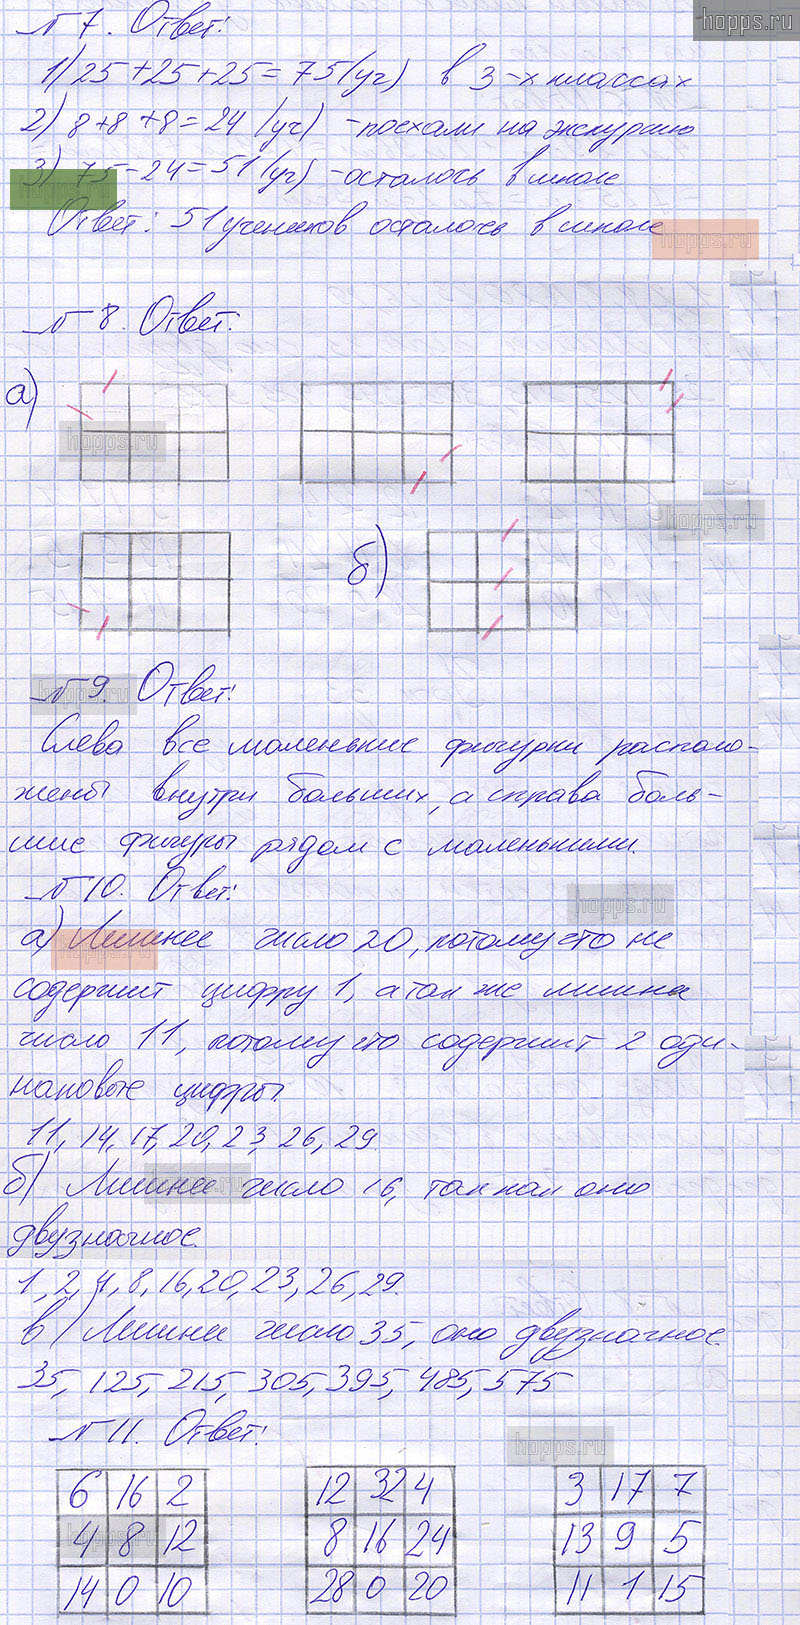 hopps.ru
№ 7. Ответ:
1) 25+25+25=75(уч) в 3-х классах
2) 8+8+8=24 (уч) -поехали на экскурсию
3) 75-24=51(уч) -осталось в школе
hopps.ru
Ответ: 51 учеников осталось в школе
hopps.ru
№ 8. Ответ:
а)
hopps.ru
hopps.ru
б)
№ 9. Ответ:
hopps.ru
Слева все маленькие фигурки располо-
жены внутри больших, а справа боль-
шие фигуры рядом с маленькими.
№ 10. Ответ:
hopps.ru
а) Лишнее число 20, потому что не
hopps.ru
содержит цифру 1, а так же лишнее
число 11, потому что содержит 2 оди-
наковые цифры.
11, 14, 17, 20, 23, 26, 29.
б) Лишнее число 16, так как оно
hopps.ru
двузначное.
1, 2, 4, 8, 16, 20, 23, 26, 29.
в) Лишнее число 35, оно двузначное.
35, 125, 215, 305, 395, 485, 575
№ 11. Ответ:
hopps.ru
6 16 2 12 32 4 3 17 7
4 8 12 8 16 24 13 9 5
hopps.ru
14 0 10 28 0 20 11 1 15